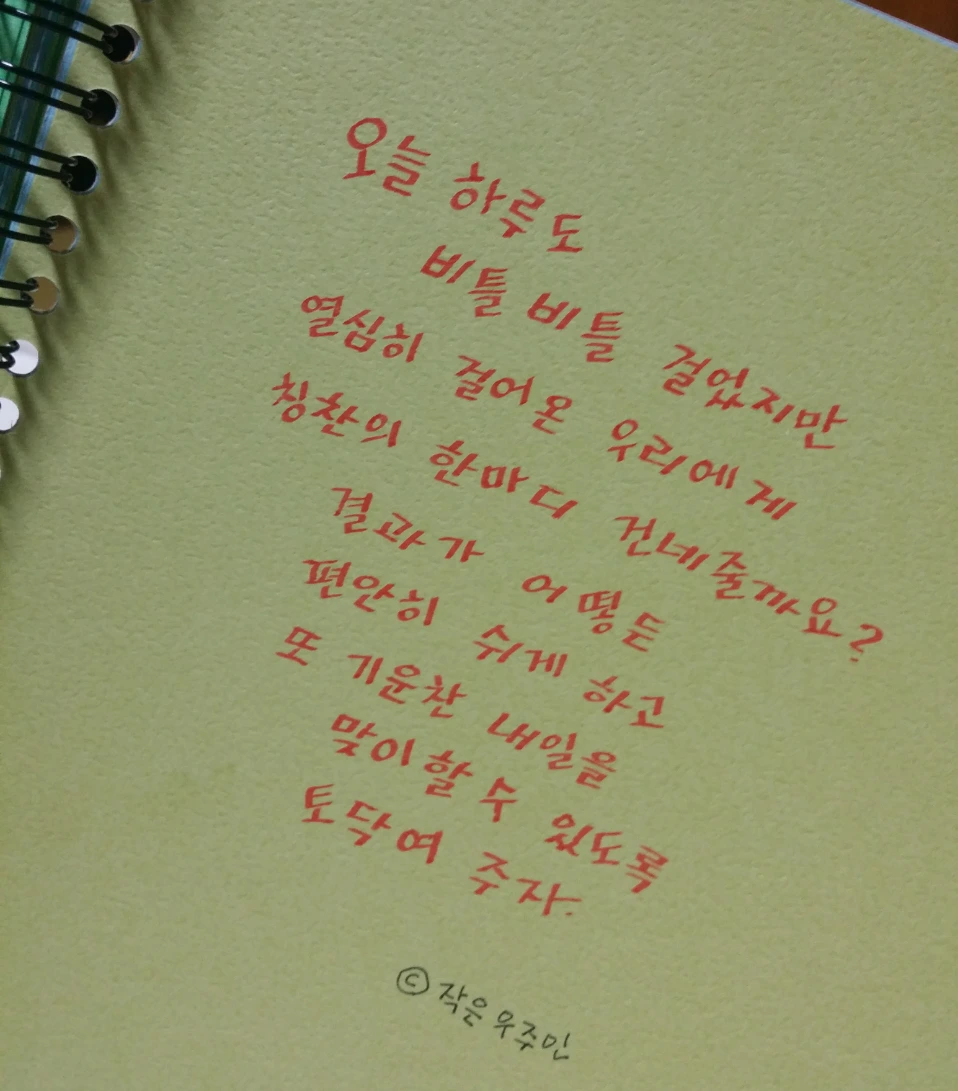 오늘 하루도
비틀비틀 걸었지만
열심히 걸어온 우리에게
칭찬의 한마디 건네줄까요?
결과가 어떻든
편안히 쉬게 하고
또 기운찬 내일을
맞이할 수 있도록
토닥여 주자.
© 작은우주인